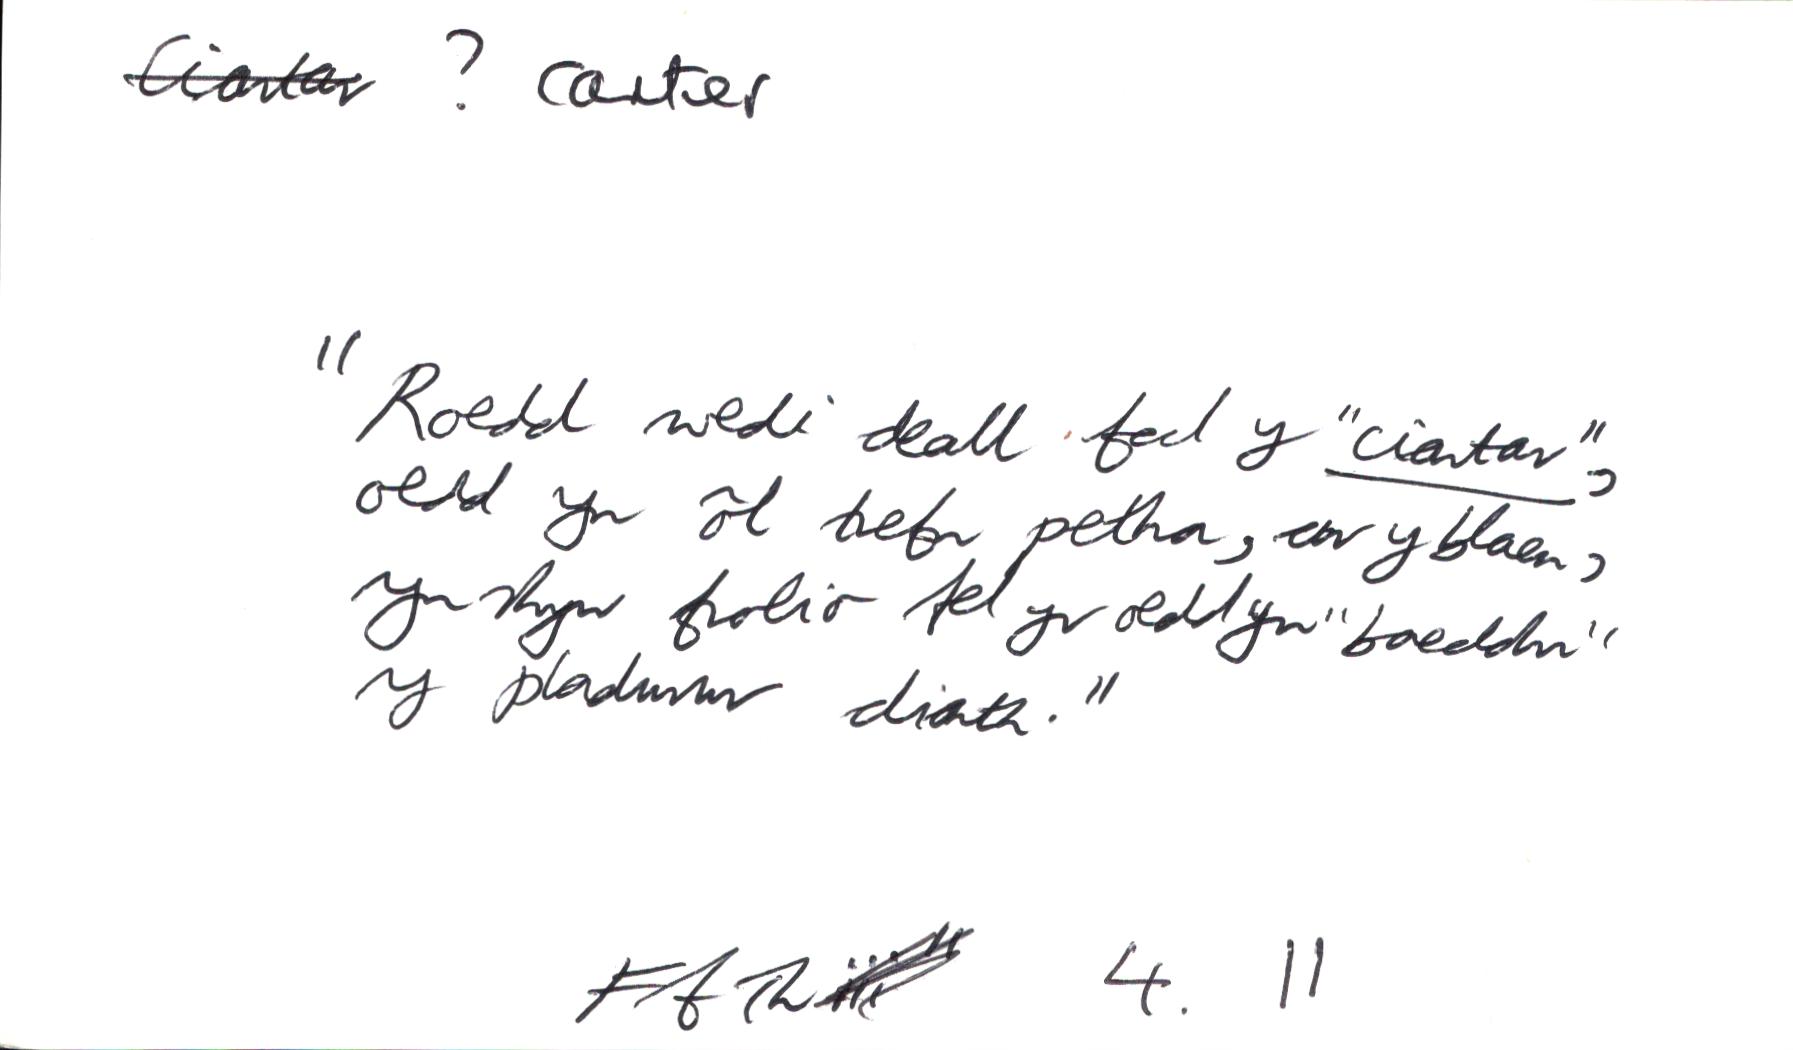 Ciartar ? carter
"Roedd wedi deall fod y "ciartar",
oedd yn ôl trefn petha, ar y blaen,
yn rhyw frolio fel yr oedd yn "baeddu"
y pladurwr diarth."
Ff Th 4. 11